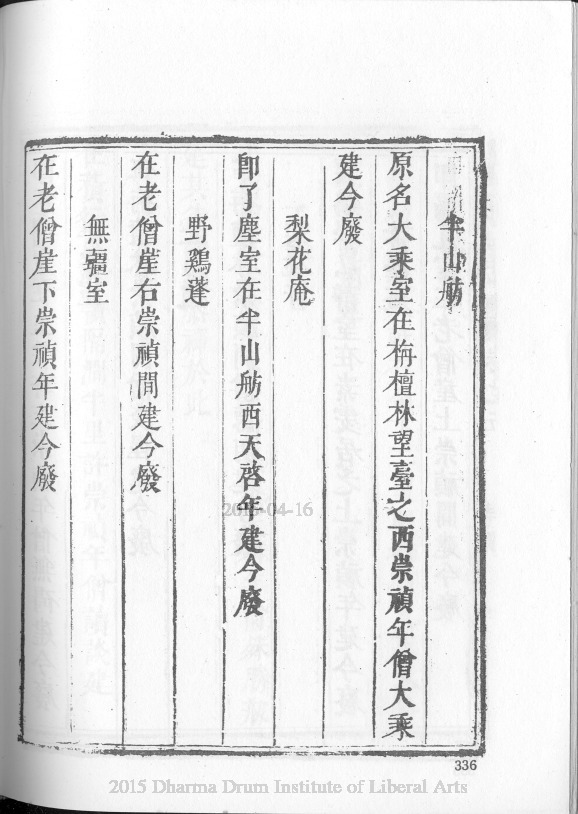 半山舫
原名大乘室在栴檀林望臺之西崇禎年僧大乘
建今廢
梨花庵
即了塵室在半山舫西天啓年建今廢
野鷄蓬
在老僧崖右崇禎間建今廢
無疆室
在老僧崖下崇禎年建今廢
2015-04-16
336
2015 Dharma Drum Institute of Liberal Arts